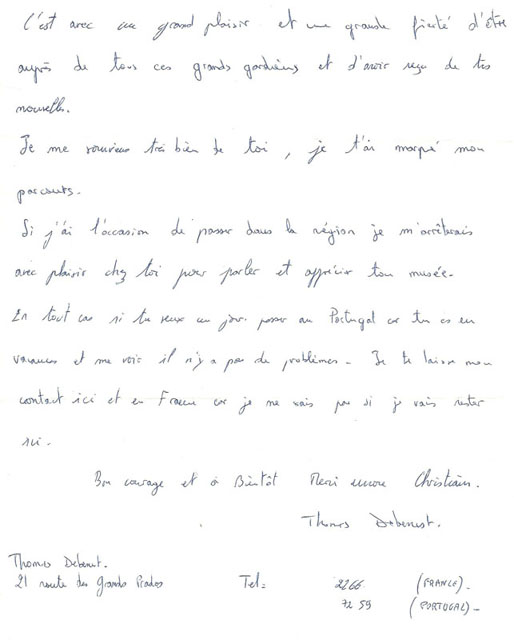 C'est avec un grand plaisir et une grande fierté d'être
auprès de tous ces grands gardiens et d'avoir reçu de tes
nouvelles.
Je me souviens très bien de toi, je t'ai marqué mon
parcours.
Si j'ai l'occasion de passer dans la région je m'arrêterais
avec plaisir chez toi pour parler et apprécier ton musée.
En tout cas si tu veux un jour passer au Portugal car tu es en
vacances et me voir il n'y a pas de problèmes. Je te laisse mon
contact ici et en France car je ne sais pas si je vais rester
ici.
Bon courage et à Bientôt Merci encore Christian.
Thomas Debenest.
Thomas Debenest.
21 route des Grands Prades
Tel: 2266 (FRANCE).
72 59 (PORTUGAL).